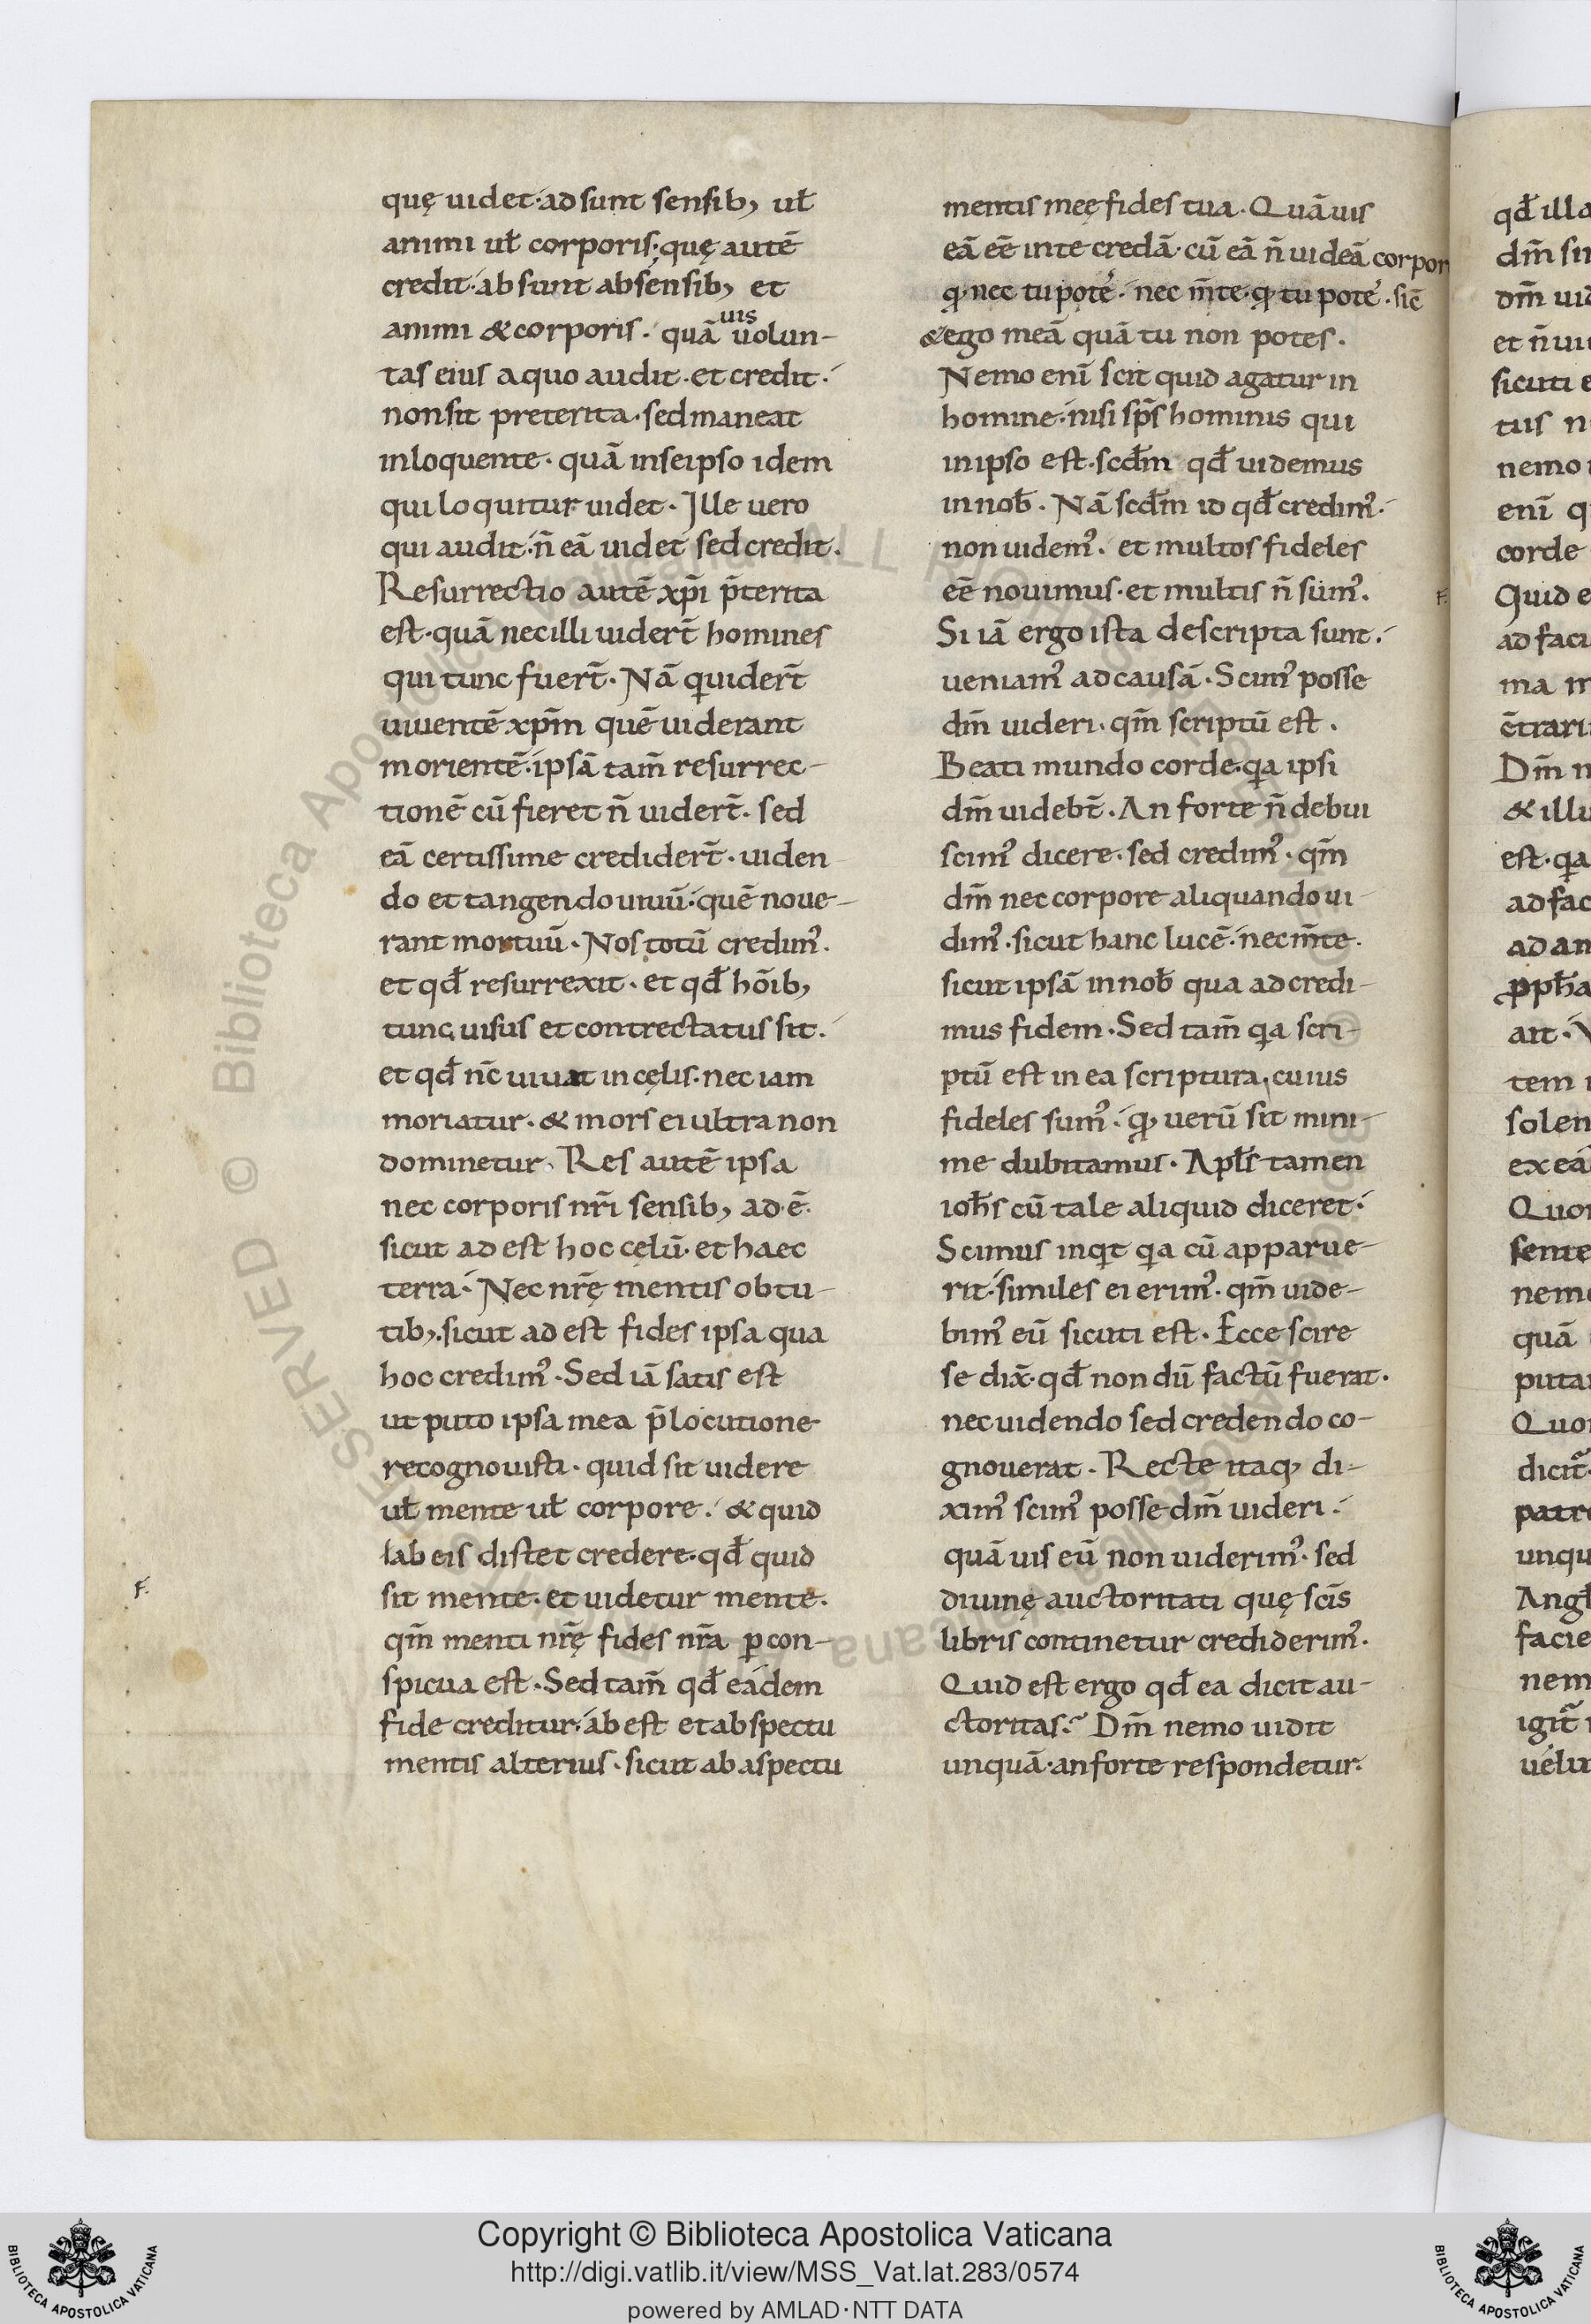 quę uidet·́ adsunt sensib; ul̄
animi ul̄ corporis; quę autē
credit·́ absunt absensib; et
animi & corporis·́ quāuis uolun-
tas eius aquo audit· et credit·́
nonsit preterita· sed maneat
inloquente· quā inseipso idem
qui loquitur uidet· Ille uero
qui audit·́ n̄ eā uidet sed credit.
Resurrectio autē xp̄i p̄terita
est· quā nec illi uidert̄ homines
qui tunc fuert̄· Nā q uidert̄
uiuentē xp̄m quē uiderant
morientē·́ ipsā tam̄ resurrec-
tionē cū fieret n̄ uidert̄· sed
eā certissime credidert̄· uiden-
do et tangendo uiuū·́ quē noue-
rant mortuū· Nos totū credim᾿.
et qd̄ resurrexit· et qd̄ hōib;
tunc uisus et contrectatus sit·́
et qd̄ nc̄ uiuat in cęlis· nec iam
moriatur· & mors ei ultra non
dominetur· Res autē ipsa
nec corporis nr̄i sensib; ad·ē·
sicut adest hoc cęlū· et haec
terra·́ Nec nr̄ę mentis obtu-
tib;· sicut adest fides ipsa qua
hoc credim᾿· Sed iā satis est
ut puto ipsa mea p̄locutione
recognouisti· quid sit uidere
ul̄ mente ul̄ corpore·́ & quid
ab eis distet credere· qd̄ quid
F.
sit mente· et uidetur mente·
qm̄ menti nr̄ę fides nr̄a ꝑcon-
spicua est· Sed tam̄ qd̄ eadem
fide creditur·́ abest et abspectu
mentis alterius· sicut ab aspectu
mentis meę fides tua· Quāuis
eā eē inte credā· cū eā n̄ uideā corpor
q; nec tu potē·́ nec m̄te· q; tu potē· sic̄
& ego meā quā tu non potes.
Nemo enī scit quid agatur in
homine·́ nisi sp̄s hominis qui
inipso est· scd̄m qd̄ uidemus
in nob̄· Nā scd̄m id qd̄ credim᾿·́
non uidem᾿·́ et multos fideles
eē nouimus· et multis n̄ sum᾿.
F.
Si iā ergo ista descripta sunt·́
ueniam᾿ ad causā· Scim᾿ posse
dm̄ uideri· qm̄ scriptū est·
Beati mundo corde· qa ipsi
dm̄ uidebt̄· An forte n̄ debui
scim᾿ dicere· sed credim᾿· qm̄
dm̄ nec corpore aliquando ui-
dim᾿· sicut hanc lucē·́ nec m̄te·
sicut ipsā in nob̄ qua ad credi-
mus fidem· Sed tam̄ qa scri-
ptū est in ea scriptura, cuius
fideles sum᾿·́ q; uerū sit mini-
me dubitamus· Apl̄s tamen
ioh̄s cū tale aliquid diceret·́
Scimus inqt qa cū apparue-
rit·́ similes ei erim᾿· qm̄ uide-
bim᾿ eū sicuti est· Ecce scire
se dix̄· qd̄ non dū factū fuerat·
nec uidendo sed credendo co-
gnouerat· Recte itaq; di-
xim᾿ scim᾿ posse dm̄ uideri·́
quā uis eū non uiderim᾿· sed
diuinę auctoritati quę scīs
libris continetur crediderim᾿·
Quid est ergo qd̄ ea dicit au-
ctoritas·̃ Dm̄ nemo uidit
unquā· an forte respondetur·
Copyright © Biblioteca Apostolica Vaticana
http://digi.vatlib.it/view/MSS_Vat.lat.283/0574
powered by AMLAD·NTT DATA
BIBLIOTECA APOSTOLICA VATICANA
BIBLIOTECA APOSTOLICA VATICANA